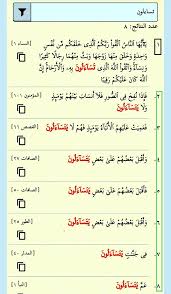 تساءلون
عدد النتائج: ٨
١ يَٰٓأَيُّهَا ٱلنَّاسُ ٱتَّقُوا۟ رَبَّكُمُ ٱلَّذِى خَلَقَكُم مِّن نَّفْسٍ [النساء ١]
وَٰحِدَةٍ وَخَلَقَ مِنْهَا زَوْجَهَا وَبَثَّ مِنْهُمَا رِجَالًا كَثِيرًا
وَنِسَآءً وَٱتَّقُوا۟ ٱللَّهَ ٱلَّذِى تَسَآءَلُونَ بِهِۦ وَٱلْأَرْحَامَ إِنَّ
ٱللَّهَ كَانَ عَلَيْكُمْ رَقِيبًا
٢. فَإِذَا نُفِخَ فِى ٱلصُّورِ فَلَآ أَنسَابَ بَيْنَهُمْ يَوْمَئِذٍ [المؤمنون ١٠١]
وَلَا يَتَسَآءَلُونَ
٣. فَعَمِيَتْ عَلَيْهِمُ ٱلْأَنۢبَآءُ يَوْمَئِذٍ فَهُمْ لَا يَتَسَآءَلُونَ [القصص ٦٦]
٤. وَأَقْبَلَ بَعْضُهُمْ عَلَىٰ بَعْضٍ يَتَسَآءَلُونَ [الصافات ٢٧]
٥. فَأَقْبَلَ بَعْضُهُمْ عَلَىٰ بَعْضٍ يَتَسَآءَلُونَ [الصافات ٥٠]
٦. وَأَقْبَلَ بَعْضُهُمْ عَلَىٰ بَعْضٍ يَتَسَآءَلُونَ [الطور ٢٥]
٧. فِى جَنَّٰتٍ يَتَسَآءَلُونَ [المدثر ٤٠]
٨. عَمَّ يَتَسَآءَلُونَ [النبأ ١]